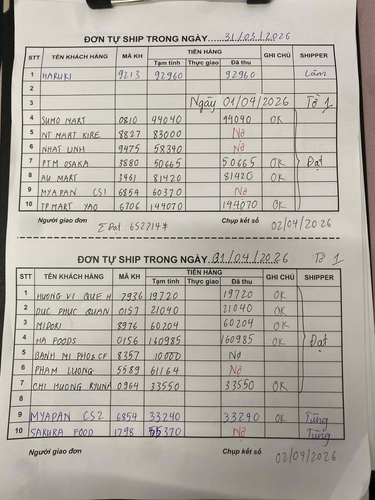 ĐƠN TỰ SHIP TRONG NGÀY 31/03/2026
STT TÊN KHÁCH HÀNG MÃ KH TIỀN HÀNG GHI CHÚ SHIPPER
Tạm tính Thực giao Đã thu
1 HARUKI 9213 92960 92960 Lâm
2
3 Ngày 01/04/2026 Tờ 1
4 SUMO MART 0810 44040 44040 OK
5 NT MART KIRE 8827 83000 Nợ
6 NHAT LINH 9475 58340 Nợ
7 PTM OSAKA 3880 50665 50665 OK Đạt
8 AU MART 3961 81420 81420 OK
9 MYAPAN CS1 6854 60370 Nợ
10 TP MART YAO 6706 144070 144070 OK
Người giao đơn Σ Đạt 652714¥ Chụp kết sổ 02/04/2026
ĐƠN TỰ SHIP TRONG NGÀY 01/04/2026 Tờ 1
STT TÊN KHÁCH HÀNG MÃ KH TIỀN HÀNG GHI CHÚ SHIPPER
Tạm tính Thực giao Đã thu
1 HUONG VI QUE H 7936 19720 19720 OK
2 DUC PHUC QUAN 0157 21040 21040 OK
3 MIDORI 8976 60204 60204 OK
4 HA FOODS 0156 160985 160985 OK Đạt
5 BANH MI PHO&CF 8357 10000 Nợ
6 PHAM LUONG 5589 61164 Nợ
7 CHI HUONG RYUNA 0964 33550 33550 OK
8
9 MYAPAN CS2 6854 33240 33240 OK Tùng
10 SAKURA FOOD 1798 55370 Nợ Tùng
Người giao đơn Chụp kết sổ 02/04/2026